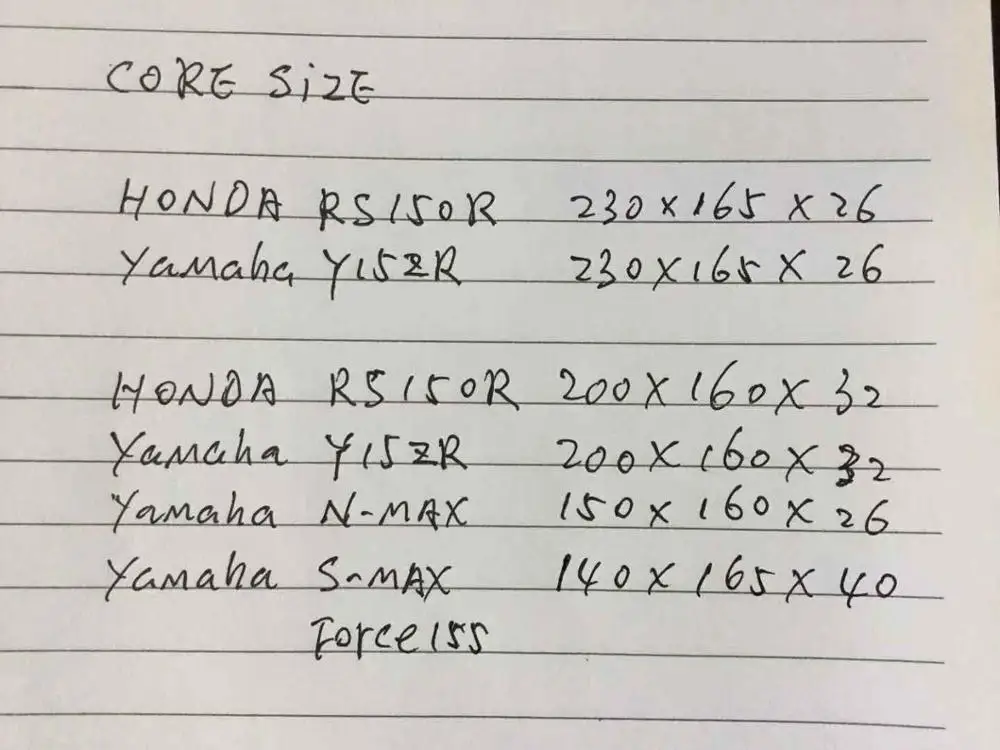 CORE SiZE
HONDA RS150R 230 x 165 x 26
Yamaha Y15ZR 230 X 165 X 26
HONDA RS150R 200 X 160 X 32
Yamaha Y15ZR 200 X 160 X 32
Yamaha N-MAX 150 X 160 X 26
Yamaha S-MAX 140 X 165 X 40
Force 155